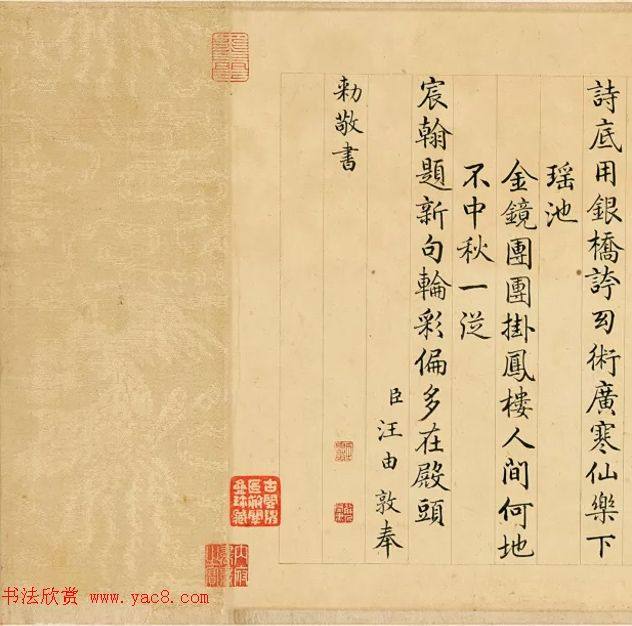 詩底用銀橋誇幻術廣寒仙樂下
瑶池
金鏡團團掛鳳樓人間何地
不中秋一從
宸翰題新句輪彩偏多在殿頭
臣汪由敦奉
勅敬書
书法欣赏 www.yac8.com